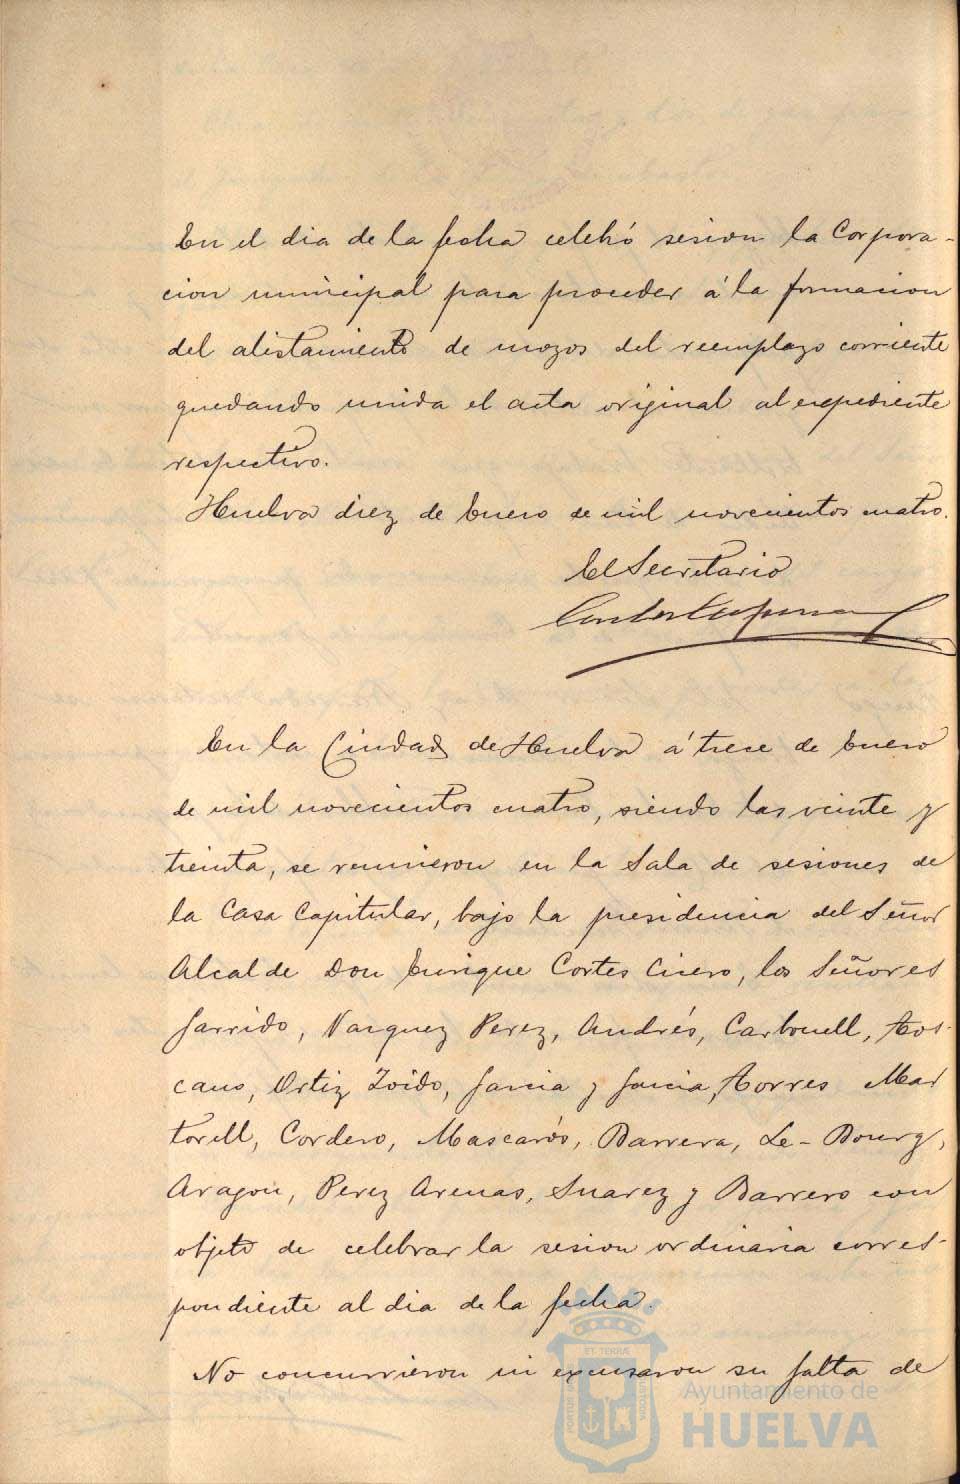 En el dia de la fecha celebró sesion la Corpora-
cion municipal para proceder á la formacion
del alistamiento de mozos del reemplazo corriente
quedando unida el acta original al expediente
respectivo.
Huelva diez de Enero de mil novecientos cuatro.
El Secretario
En la Ciudad de Huelva á trece de Enero
de mil novecientos cuatro, siendo las veinte y
treinta, se reunieron en la Sala de sesiones de
la Casa Capitular, bajo la presidencia del Señor
Alcalde Don Enrique Cortes Cisero, los Señores
Garrido, Vazquez Perez, Andrés, Carbonell, Tos-
cano, Ortiz Zoido, Garcia y Garcia, Torres Mar
torell, Cordero, Mascarós, Barrera, Le-Bourg,
Aragon, Perez Arenas, Suarez y Barrero con
objeto de celebrar la sesion ordinaria corres-
pondiente al dia de la fecha.
No concurrieron ni excusaron su falta de
ET TERRÆ
PORTUS CUSTODIA
Ayuntamiento de
HUELVA